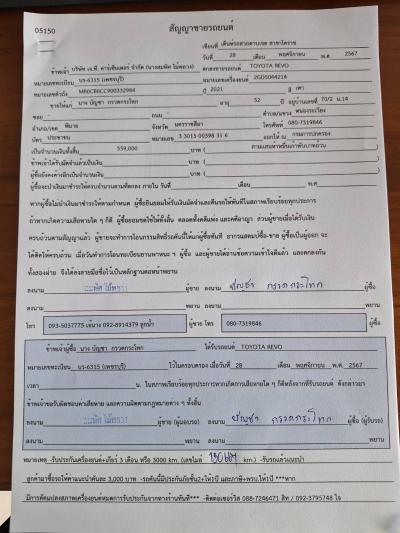 05150
สัญญาขายรถยนต์
เขียนที่ เต็นท์รถสวยตามเจต สาขาโคราช
วันที่ 28 เดือน พฤศจิกายน พ.ศ. 2567
ข้าพเจ้า บริษัท เจ.พี. คาร์เซ็นเตอร์ จำกัด ตกลงขายรถยนต์ TOYOTA REVO
หมายเลขทะเบียน บร-6315 (เพชรบุรี) หมายเลขเครื่องยนต์ 2GD5044214
หมายเลขตัวถัง MR0CB8CC900332984 ปี 2021 สี เทา
ขายให้แก่ นาง บัญชา กรวดกระโทก อายุ 52 ปี อยู่บ้านเลขที่ 70/2 ม.14
ซอย - ถนน ตำบล/แขวง หนองระเวียง
อำเภอ/เขต พิมาย จังหวัด นครราชสีมา โทรศัพท์ 080-7319846
บัตร ประชาชน หมายเลข 3 3015 00398 31 6 ออกให้ ณ กรมการปกครอง
เป็นจำนวนเงินทั้งสิ้น 359,000 บาท ( สามแสนห้าหมื่นเก้าพันบาทถ้วน )
ข้าพเจ้าได้รับมัดจำแล้วเป็นเงิน บาท ( )
ผู้ซื้อยังคงค้างอีกเป็นจำนวนเงิน บาท ( )
ผู้ซื้อจะนำเงินมาชำระให้ครบจำนวนตามที่ตกลง ภายใน วันที่ เดือน พ.ศ.
หากผู้ซื้อไม่นำเงินมาชำระให้ตามกำหนด ผู้ซื้อยินยอมให้ริบเงินมัดจำและคืนรถให้ทันทีในสภาพเรียบร้อยทุกประการ
ถ้าหากเกิดความเสียหายใด ๆ ก็ดี ผู้ซื้อยอมชดใช้ให้ทั้งสิ้น ตลอดทั้งคดีแพ่ง และคดีอาญา ส่วนผู้ขายเมื่อได้รับเงิน
ครบถ้วนตามสัญญาแล้ว ผู้ขายจะทำการโอนกรรมสิทธิ์รถคันนี้ให้มาผู้ซื้อทันที อากรแสตมป์ซื้อ-ขาย ผู้ซื้อเป็นผู้ออก จะ
ได้คิดให้ครบถ้วน เมื่อวันทำการโอนทะเบียนยานพาหนะ ฯ ผู้ซื้อ และผู้ขายได้อ่านข้อความเข้าใจดีแล้ว และตกลงกัน
ทั้งสองฝ่าย จึงได้ลงลายมือชื่อไว้เป็นหลักฐานต่อหน้าพยาน
ลงนาม ผู้ขาย ลงนาม บัญชา กรวดกระโทก ผู้ซื้อ
ลงนาม พยาน ลงนาม พยาน
โทร 093-5037775 เจ๊นาง 092-8914379 ลูกน้ำ ผู้ขาย โทร 080-7319846 ผู้ซื้อ
ข้าพเจ้าผู้ซื้อ นาง บัญชา กรวดกระโทก ได้รับรถยนต์ TOYOTA REVO
หมายเลขทะเบียน บร-6315 (เพชรบุรี) ไว้ในครอบครอง เมื่อวันที่ 28 เดือน พฤศจิกายน พ.ศ. 2567
เวลา น. ในสภาพเรียบร้อยทุกประการหากเกิดการเสียหายใด ๆ ก็ดีหลังจากที่รับรถยนต์ ดังกล่าวมา
ข้าพเจ้าขอรับผิดชอบค่าเสียหาย และความผิดตามกฎหมายต่าง ๆ ทั้งสิ้น
ลงนาม ผู้ขาย (ผู้มอบรถ) ลงนาม บัญชา กรวดกระโทก ผู้ซื้อ (ผู้รับรถ)
ลงนาม พยาน ลงนาม พยาน
หมายเหตุ -รับประกันเครื่องยนต์+เกียร์ 3 เดือน หรือ 3000 km. (เลขไมล์ km.) -รับรถแล้วแนะนำ
ลูกค้ามาซื้อรถให้ค่าแนะนำคันละ 3,000 บาท -รถคันนี้มีประกันภัยชั้น2+ให้1ปี และภาษี+พรบ.ให้1ปี ***หาก
มีการดัดแปลงสภาพเครื่องยนต์หมดการรับประกันจากทางร้านทันที*** -ติดต่อเซอร์วิส 088-7246471 สิท / 092-3795748 ใจ